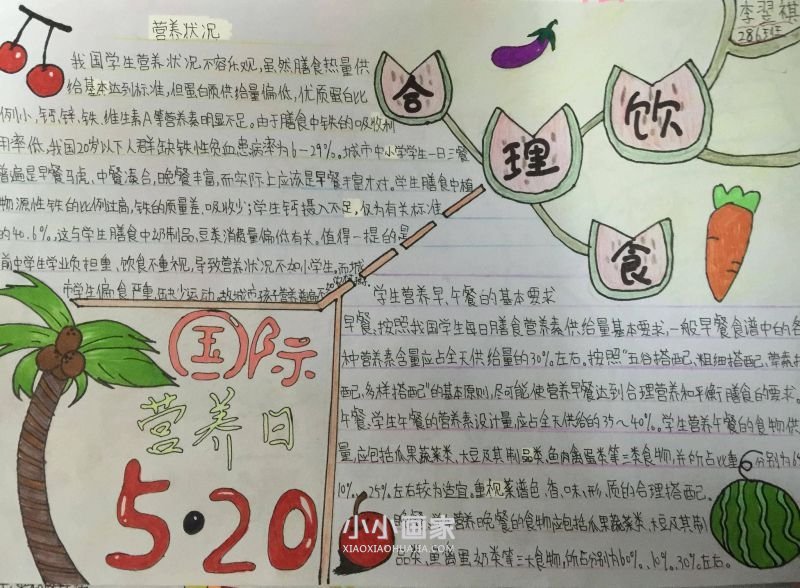 营养状况
我国学生营养状况不容乐观,虽然膳食热量供
给基本达到标准,但蛋白质供给量偏低,优质蛋白比
例小,钙,锌,铁,维生素A等营养素明显不足。由于膳食中铁的吸收利
用率低,我国20岁以下人群缺铁性贫血患病率为6-29%。城市中小学学生一日三餐
普遍是早餐马虎,中餐凑合,晚餐丰富,而实际上应该是早餐丰富才对。学生膳食中植
物源性铁的比例过高,铁的质量差、吸收少;学生钙摄入不足,仅为有关标准
的40.6%,这与学生膳食中奶制品,豆类消费量偏低有关。值得一提的是
前中学生学业负担重,饮食不重视,导致营养状况不如小学生。而城
中学生偏食严重,缺少运动,
合
理
饮
食
李翌祺
286班
国际
营养日
5·20
学生营养早、午餐的基本要求
早餐,按照我国学生每日膳食营养素供给量基本要求,一般早餐食谱中的各
种营养素含量应占全天供给量的30%左右。按照"五谷搭配、粗细搭配、荤素搭
配,多样搭配"的基本原则,尽可能使营养早餐达到合理营养和平衡膳食的要求。
午餐:学生午餐的营养素设计量,应占全天供给的35~40%。学生营养午餐的食物供
量,应包括瓜果蔬菜类、大豆及其制品类,鱼肉禽蛋类等三类食物,并所占比重分别为
10%、25%左右较为适宜。重视菜谱色、香、味、形、质的合理搭配。
营养晚餐的食物应包括瓜果蔬菜类、大豆及其制
品类、禽蛋奶类等三大食物,所占分别为60%、10%、30%左右。
小小画家
XIAOXIAOHUAJIA.COM